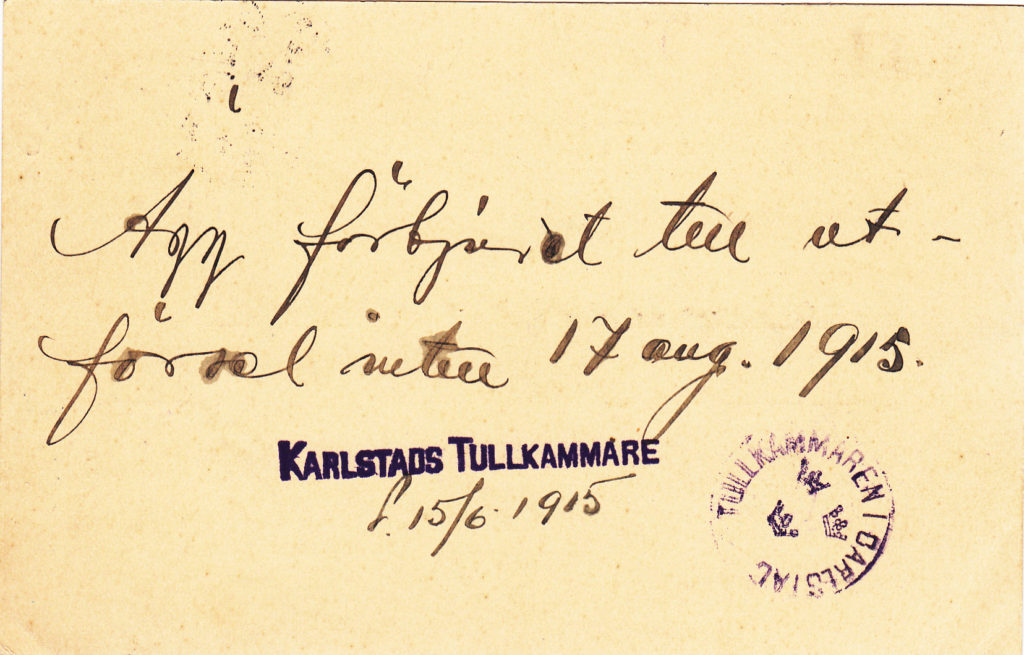 Ägg förbjudet till ut-
försel intill 17 aug. 1915.
KARLSTADS TULLKAMMARE
15/6 1915
TULLKAMMAREN I CARLSTAD